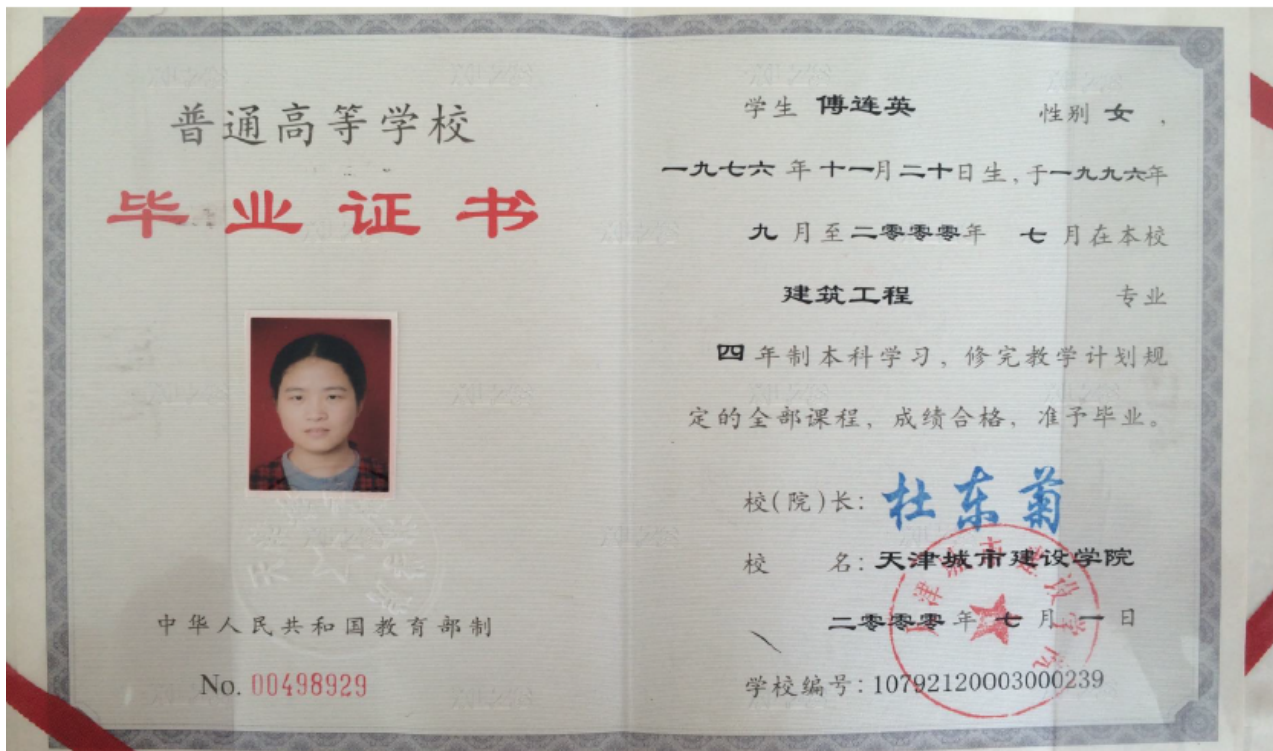 普通高等学校
毕业证书
中华人民共和国教育部制
No. 00498929
学生 傅连英 性别 女 ,
一九七六 年 十一月 二十日生, 于一九九六年
九 月至二零零零年 七 月在本校
建筑工程 专业
四 年制本科学习, 修完教学计划规
定的全部课程, 成绩合格, 准予毕业。
校(院)长: 杜东菊
校 名: 天津城市建设学院
二零零零 年 七 月 一 日
学校编号: 10792120003000239
天津城市建设学院